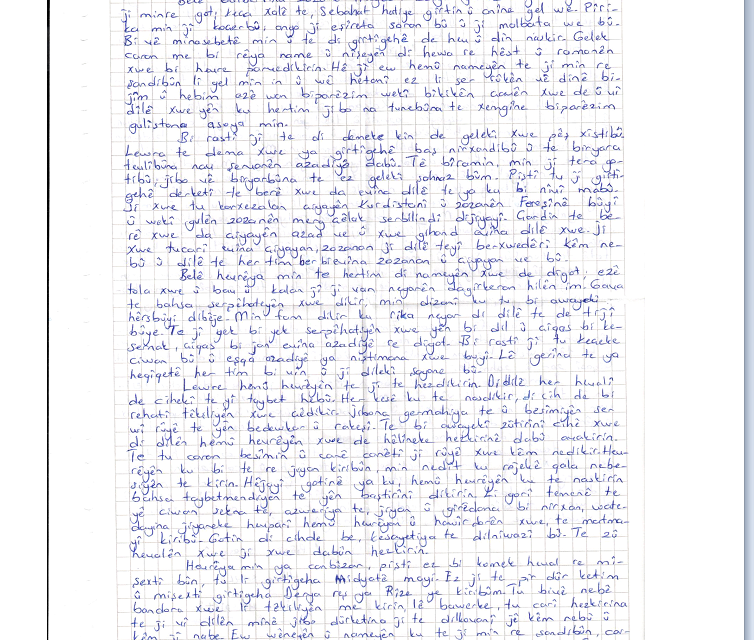 ji minre got; keça xalê te, Sebahat hatiye girtin û anîne gel we. Pirî-
ka min jî koçerbû, anga ji eşîreta soran bû û ji malbata we bû.
Bi vê minasebetê min û te di girtîgehê de hev û din naskir. Gelek
caran me bi rêya name û nîşeyên di hewa re hest û ramanên
xwe bi hevre parvedikirin. Hê jî ew hemû nameyên te ji min re
şandibûn li gel min in û wê hetanî ez li ser tûkên vê dinê bi-
jîm û hebim ezê wan biparêzim wekî bikiken çavên xwe de û di
dilê xwe yên ku hertim ji bo na tunebûna te xemgîne biparêzim
gulistana asoya min.
Bi rastî jî te di demeke kin de gelekî xwe pêş xistibû.
Lewra te dema xwe ya girtîgehê baş nirxandibû û te biryara
tevlîbûna nav şervanên azadiyê dabû. Tê bîramin, min ji tera go-
tibû, ji bo vê biryarbûna te ez gelekî şahnaz bûm. Piştî tu ji girtî-
gehê derketî te berê xwe da evîna dilê te ya ku bi nivî mabû.
Ji xwe tu karxezalan çiyayên Kurdistanî û zozanên Feraşînê bûyî
û wekî gulên zozanên merg çêlek serbilindî dijiyayî. Çardin te be-
rê xwe da çiyayên azad ve û xwe gihand evîna dilê xwe. Ji
xwe tucarî evîna çiyayan, zozanan ji dilê teyî berxwedêrî kêm ne-
bû û dilê te her tim ber bi evîna zozanan û çiyayan ve bû.
Belê hevrêya min te hertim di nameyên xwe de digot; ezê
tola xwe û bav û kalan jî ji van neyarên dagirkeran hilên im. Gava
te bahsa serpêhatiyên xwe dikir, min dizanî ku tu bi awayekî
hêrsbûyî dibêje. Min fam dikir ku rika neyar di dilê te de tijî
bûye. Te jî yek bi yek serpêhatiyên xwe yên bi dil û çiqas bi ke-
semak, çiqas bi jan evîna azadiyê re digot. Bi rastî jî tu keçeke
ciwan bû û eşqa azadiyê ya niştimana xwe bûyî. Lê gerîna te ya
heqîqetê her tim bi vîn û ji dilekî soyane bû.
Lewre hemû hevrêyên te jî te hezdikirin. Di dilê her hevalî
de cihekî te yî taybet hebû. Her kesê ku te nasdikir, di cih de bi
rehatî têkiliyên xwe çêdikir. Ji bona germahiya te û beşîmiyên ser
wî rûyê te yên bedewkar û rakeşî. Te bi awayekî zûtirînî cihê xwe
di dilên hemû hevrêyên xwe de hêlîneke hezkirinê dabû avakirin.
Te tu caran beşîmîn û canê canêtî ji rûyê xwe kêm nedikir. Hev-
rêyên ku bi te re jiyan kiribûn, min nedît ku rojekê qala nebe-
siyên te kirin. Hêjayî gotinê ya ku, hemû hevrêyên ku te naskirin
bahsa taybetmendiyên te yên baştirînî dikirin. Li gorî temenê te
yê ciwan sekna te, azweriya te, jiyan û girêdana bi nirxan, wate-
dayîna jiyaneke hevparî hemû hevrêyan û hawîrdorên xwe, te matma-
yî kiribû. Gotin di cihde be, kesayetiya te dilniwazî bû. Te zû
hevalên xwe ji xwe dabûn hezkirin.
Hevrêya min ya canbêzar, piştî ez bi komek heval re mi-
şextî bûn, tu li girtîgeha Midyatê mayî. Ez jî te pir dûr ketim
û mişextî girtîgeha Derya reş ya Rîze ye kiribûm. Tu bivê nebê
bandora xwe li têkiliyên me kirin, lê bawerke, tu carî hezkirina
te ji vî dilên minê jibo dûrketina ji te dilkovanî jê kêm nebû û
kêm jî nabe. Ew wêneyên û nameyên ku te ji min re şandibûn çar-